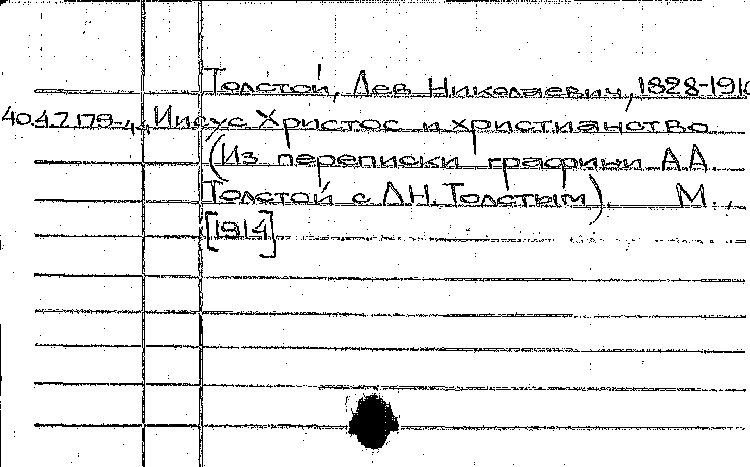 Толстой, Лев Николаевич, 1828-191
40.4.7.179-4. Иисус Христос и христианство.
(Из переписки графини А.А.
Толстой с Л.Н. Толстым). М.,
[1914]